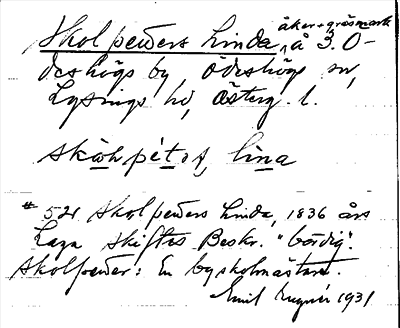 åker + gräsmark
Skolpeders Linda, å 3. Ö-
deshögs by, Ödeshögs sn,
Lysings hd, Österg. l.
skωlpétəʂ, lina
# 521 Skolpeders Linda, 1836 års
Laga skiftes Beskr. "bördig".
Skolpeder: En byskolmästare.
Emil 1931